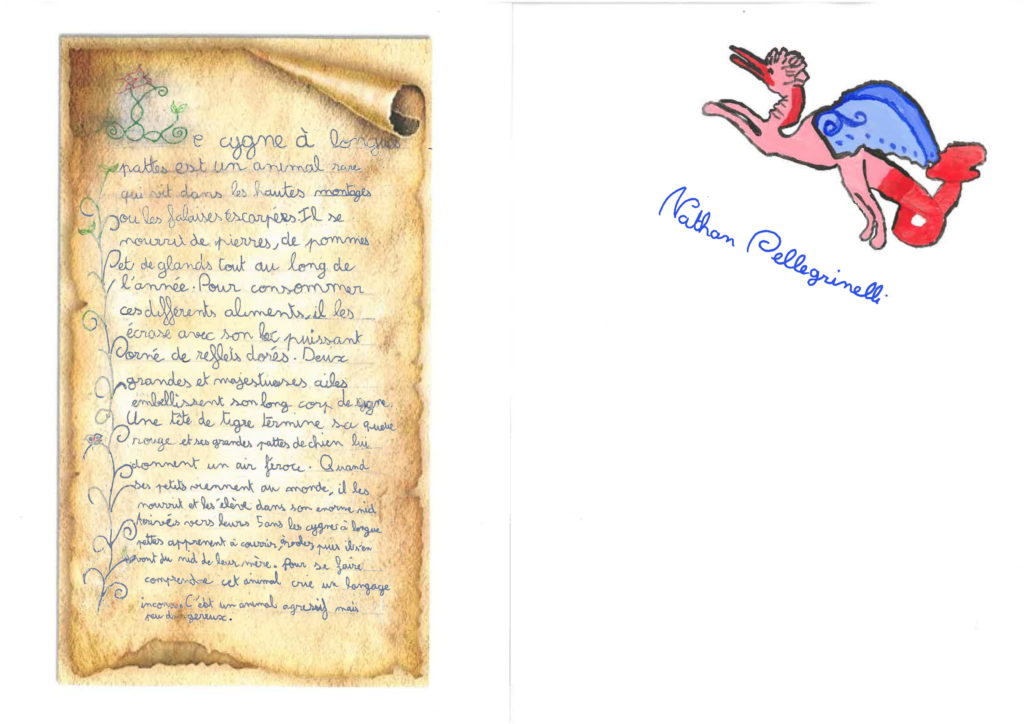 Le cygne à longues
pattes est un animal rare
qui vit dans les hautes montages
ou les falaises escarpées. Il se
nourrui de pierres, de pommes
et de glands tout au long de
l'année. Pour consommer
ces différents aliments, il les
écrase avec son bec puissant
orné de reflets dorés. Deux
grandes et majestueses ailes
embellissent son long corp de cygne.
Une tête de tigre termine sa queue
rouge et ses grandes pattes de chien lui
donnent un air féroce. Quand
ses petits viennent au monde, il les
nourrit et les élève dans son enorme nid
vers leurs 5 ans les cygnes à longue
pattes apprenent à courrir, puis ils s'en
vont du nid de leur mère. Pour se faire
comprendre cet animal crie un langage
inconu. C'est un animal agressif mais
peu dangereux.
Nathan Pellegrinelli